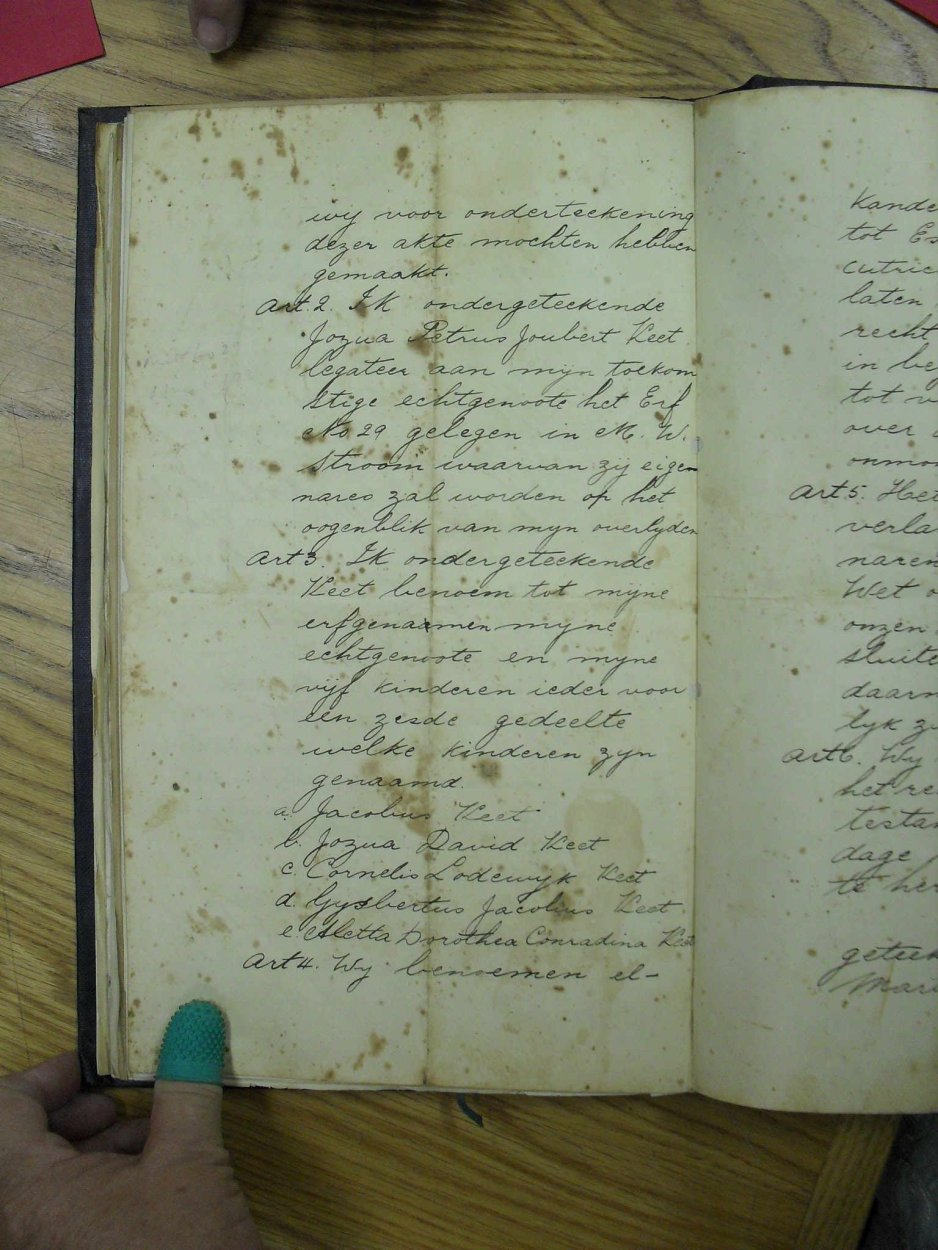 wij voor onderteekening
dezer akte mochten hebben
gemaakt.
Art. 2. Ik ondergeteekende
Jozua Petrus Joubert Keet
legateer aan mijn toekom
stige echtgenoote het Erf
No 29 gelegen in M. W.
Stroom waarvan zij eigen
nares zal worden op het
oogenblik van mijn overlyden
Art 3. Ik ondergeteekende
Keet benoem tot mijne
erfgenaamen myne
echtgenoote en myne
vijf kinderen ieder voor
een zesde gedeelte
welke kinderen zyn
genaamd.
a. Jacobus Keet
b. Jozua David Keet
c. Cornelis Lodewyk Keet
d. Gysbertus Jacobus Keet
e. Aletta Dorothea Conradina Keet
Art 4. Wy benoemen el-
kande
tot Es
cutric
laten
recht
in be
tot v
over
onmo
Art 5. Het
verla
naren
Wet o
onzen
sluite
daarn
lyk zu
Art 6. Wy
het re
testan
dage
te her
geteek
Mar